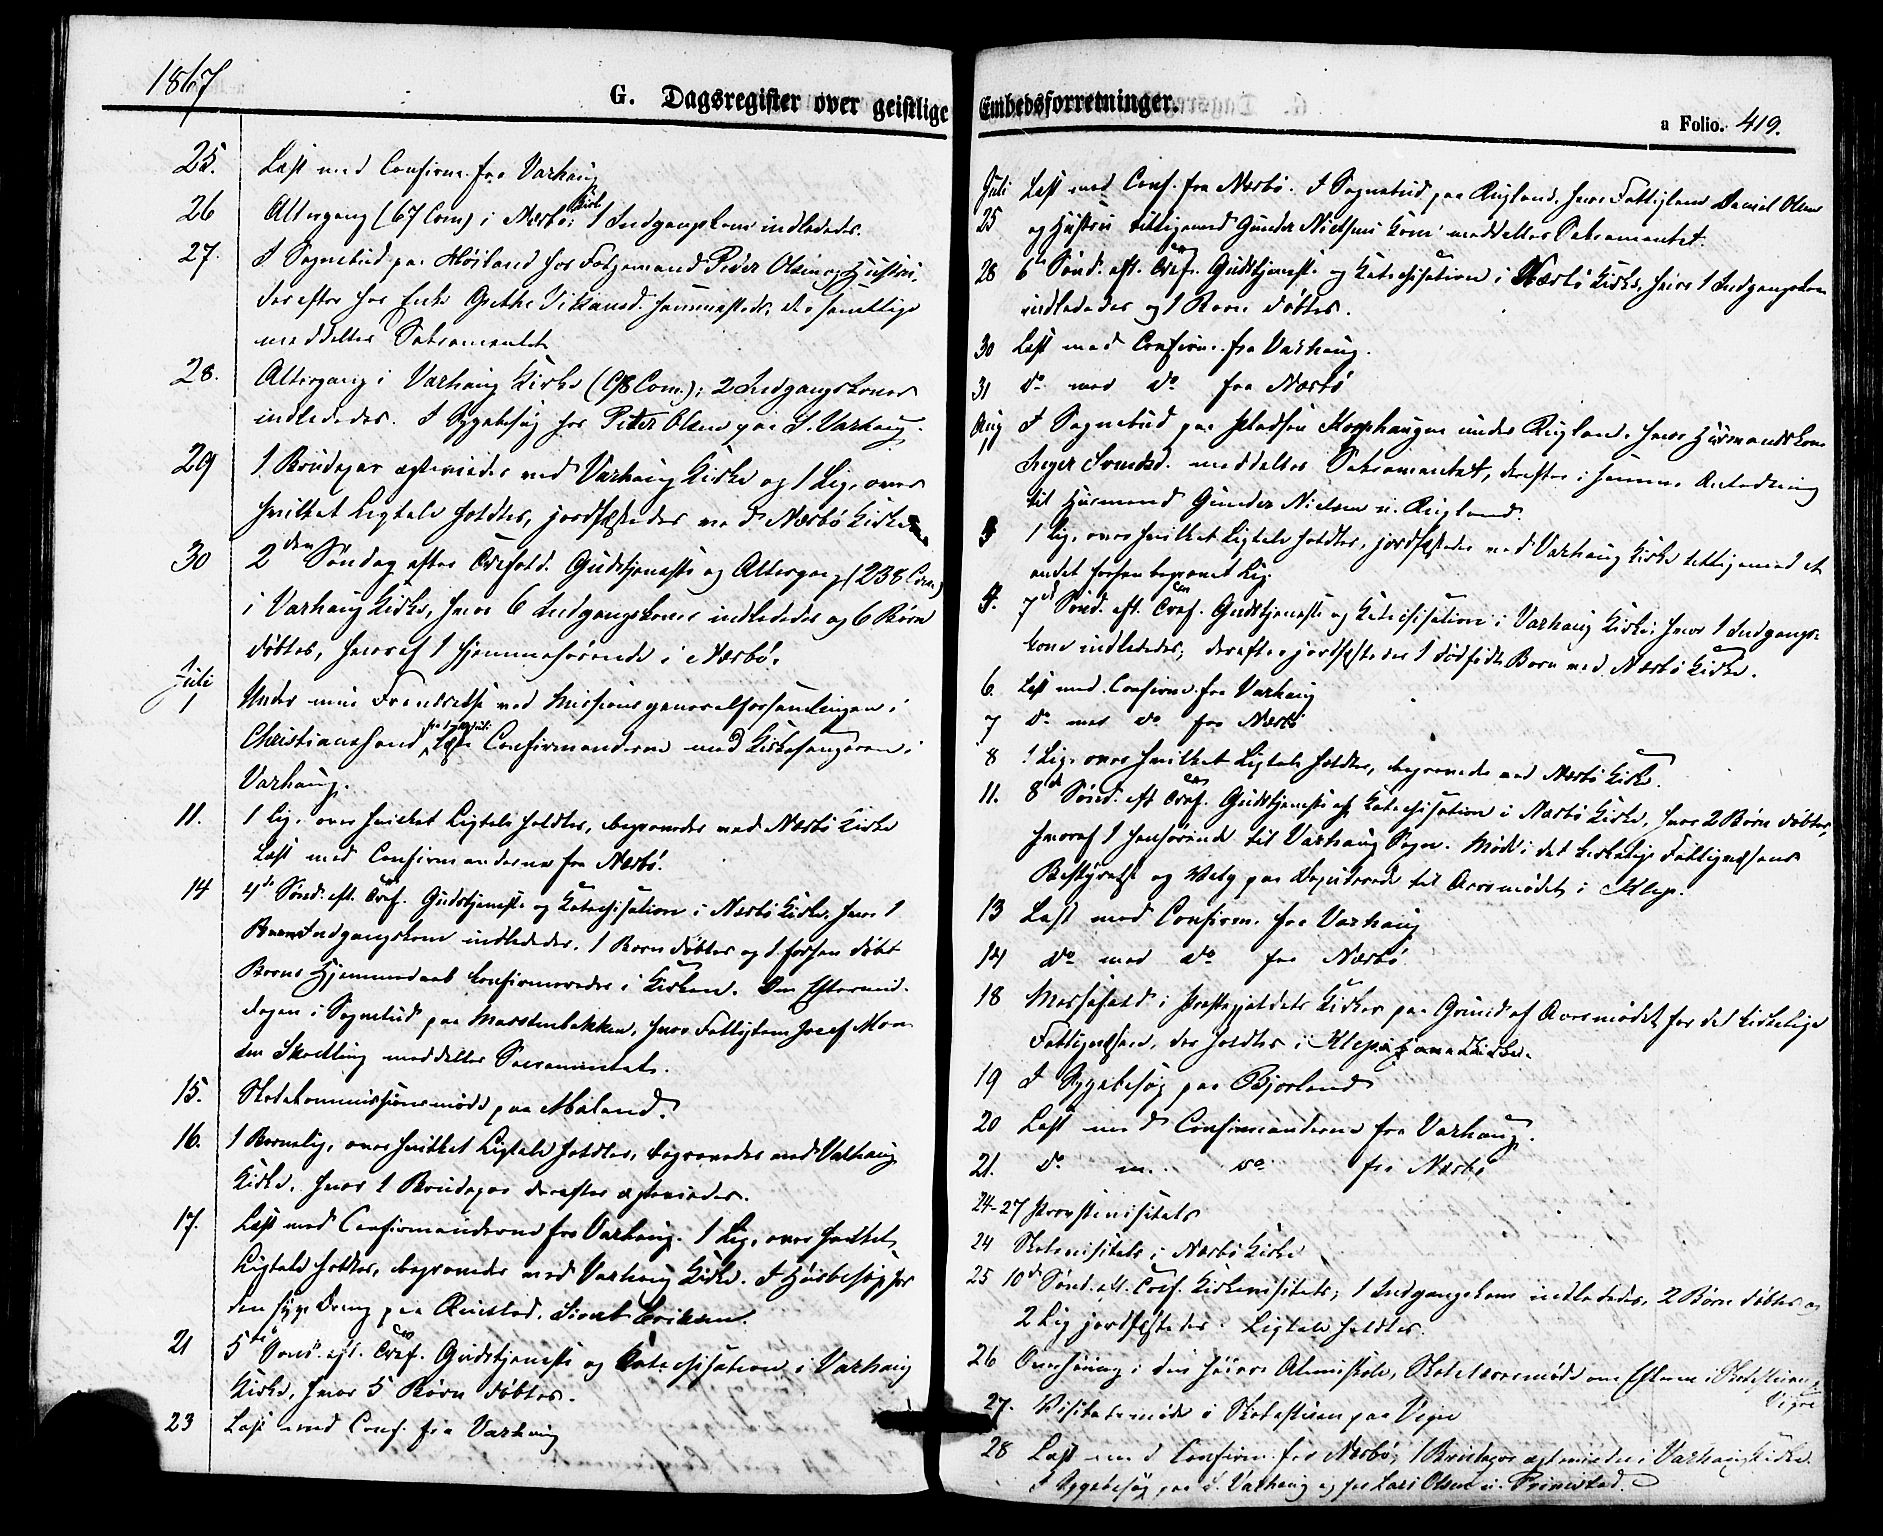 1867
G. Dagsregister over geistlige
25. Læst med Confirm. fra Varhaug
26 Altergang (67 Com) i Nærbø Kirke; 1 Indgangskone indlededes.
27. I Sognebud paa Høiland hos Peder Olsen og Hustru,
derefter hos Enke Grethe sammesteds, der samtlige
meddeltes Sakramentet
28. Altergang i Varhaug Kirke (98 Com.); 2 Indgangskoner
indlededes. I Sygebesøg hos Peter Olsen paa S. Varhaug.
29 1 Brudepar ægteviedes ved Varhaug Kirke og 1 Lig, over
hvilket Ligtale holdtes, jordfæstedes ved Nærbø Kirke
30 2den Søndag efter Trefold. Gudstjeneste og Altergang (238 Com)
i Varhaug Kirke, hvor 6 Indgangskoner indlededes og 6 Børn
døbtes, hvoraf 1 hjemmehørende i Nærbø.
Juli
1 Under min Fraværelse ved Missionsgeneralforsamlingen i
Christianssand læste Confirmanderne med Kirkesangeren i
Varhaug.
11. 1 Lig, over hvilket Ligtale holdtes, begravedes ved Nærbø Kirke
Læst med Confirmanderne fra Nærbø.
14 4de Sønd. eft. Tref. Gudstjeneste og Katechisation i Nærbø Kirke, hvor 1
Indgangskone indlededes. 1 Barn døbtes og 1 forhen døbt
Barns Hjemmedaab confirmeredes i Kirken. Om Eftermid-
dagen i Sognebud paa hvor Fattiglem Josef
meddeltes Sacramentet.
15. Skolekommissionsmøde paa Møland.
16. 1 Barnelig, over hvilket Ligtale holdtes, begravedes ved Varhaug
Kirke, hvor 1 Brudepar derefter ægteviedes.
17. Læst med Confirmanderne fra Varhaug. 1 Lig, over hvilket
Ligtale holdtes, begravedes ved Varhaug Kirke. I Husbesøg hos
den syge Dreng paa Sivert Eriksen.
21 5te Sønd. eft. Tref. Gudstjeneste og Katechisation i Varhaug
Kirke, hvor 5 Børn døbtes.
23 Læst med Conf. fra Varhaug
Embedsforretninger.
a Folio. 419.
Juli Læst med Conf. fra Nærbø. I Sognebud paa Rugland, hvor Fattiglem Daniel Olsen
25 og Hustru tilligemed Gunder Nielsens Kone meddeltes Sakramentet.
28 6te Sønd. eft. Tref. Gudstjeneste og Katechisation i Nærbø Kirke, hvor 1 Indgangskone
indlededes og 1 Barn døbtes.
30 Læst med Confirm. fra Varhaug.
31 do med do fra Nærbø
Aug I Sognebud paa Pladsen under Rugland, hvor Husmandskone
1 Inger meddeltes Sakramentet, derefter i samme Anledning
til Husmand Gunder Nielsen u. Rugland.
3 1 Lig, over hvilket Ligtale holdtes, jordfæstedes ved Varhaug Kirke tilligemed et
andet forhen begravet Lig.
4. 7d Sønd. eft. Tref. Gudstjeneste og Katechisation i Varhaug Kirke, hvor 1 Indgangs-
kone indlededes, derefter jordfæstedes 1 dødfødt Barn ved Nærbø Kirke.
6. Læst med Confirm. fra Varhaug
7 do med do fra Nærbø
8 1 Lig, over hvilket Ligtale holdtes, begravedes ved Nærbø Kirke.
11. 8d Sønd. eft Tref. Gudstjeneste og Katechisation i Nærbø Kirke, hvor 2 Børn døbtes,
hvoraf 1 henhørende til Varhaug Sogn. Møde i det kirkelige Fattigvæsens
Bestyrelse og Valg paa Deputerede til Aarsmødet i Klep.
13 Læst med Confirm. fra Varhaug
14 do med do fra Nærbø
18 Messefald i Præstegjeldets Kirker paa Grund af Aarsmødet for det kirkelige
Fattigvæsen, der holdtes i Klep
19 I Sygebesøg paa Bjorland
20 Læst med Confirmanderne fra Varhaug.
21. do m. do fra Nærbø
24-27 Provstevisitats
24 Skolevisitats i Nærbø Kirke
25 10d Sønd. eft. Tref. Kirkevisitats; 1 Indgangskone indlededes, 2 Børn døbtes og
2 Lig jordfæstedes. Ligtale holdtes.
26 i den høiere Almueskole, Skolelærermøde om Efterm. i
Vigre
27. Visitatsmøde i Skolestuen paa Vigre
28 Læst med Confirm. fra Nærbø; 1 Brudepar ægteviedes i Varhaug Kirke.
I Sygebesøg paa S. Varhaug og hos Lars Olsen u.